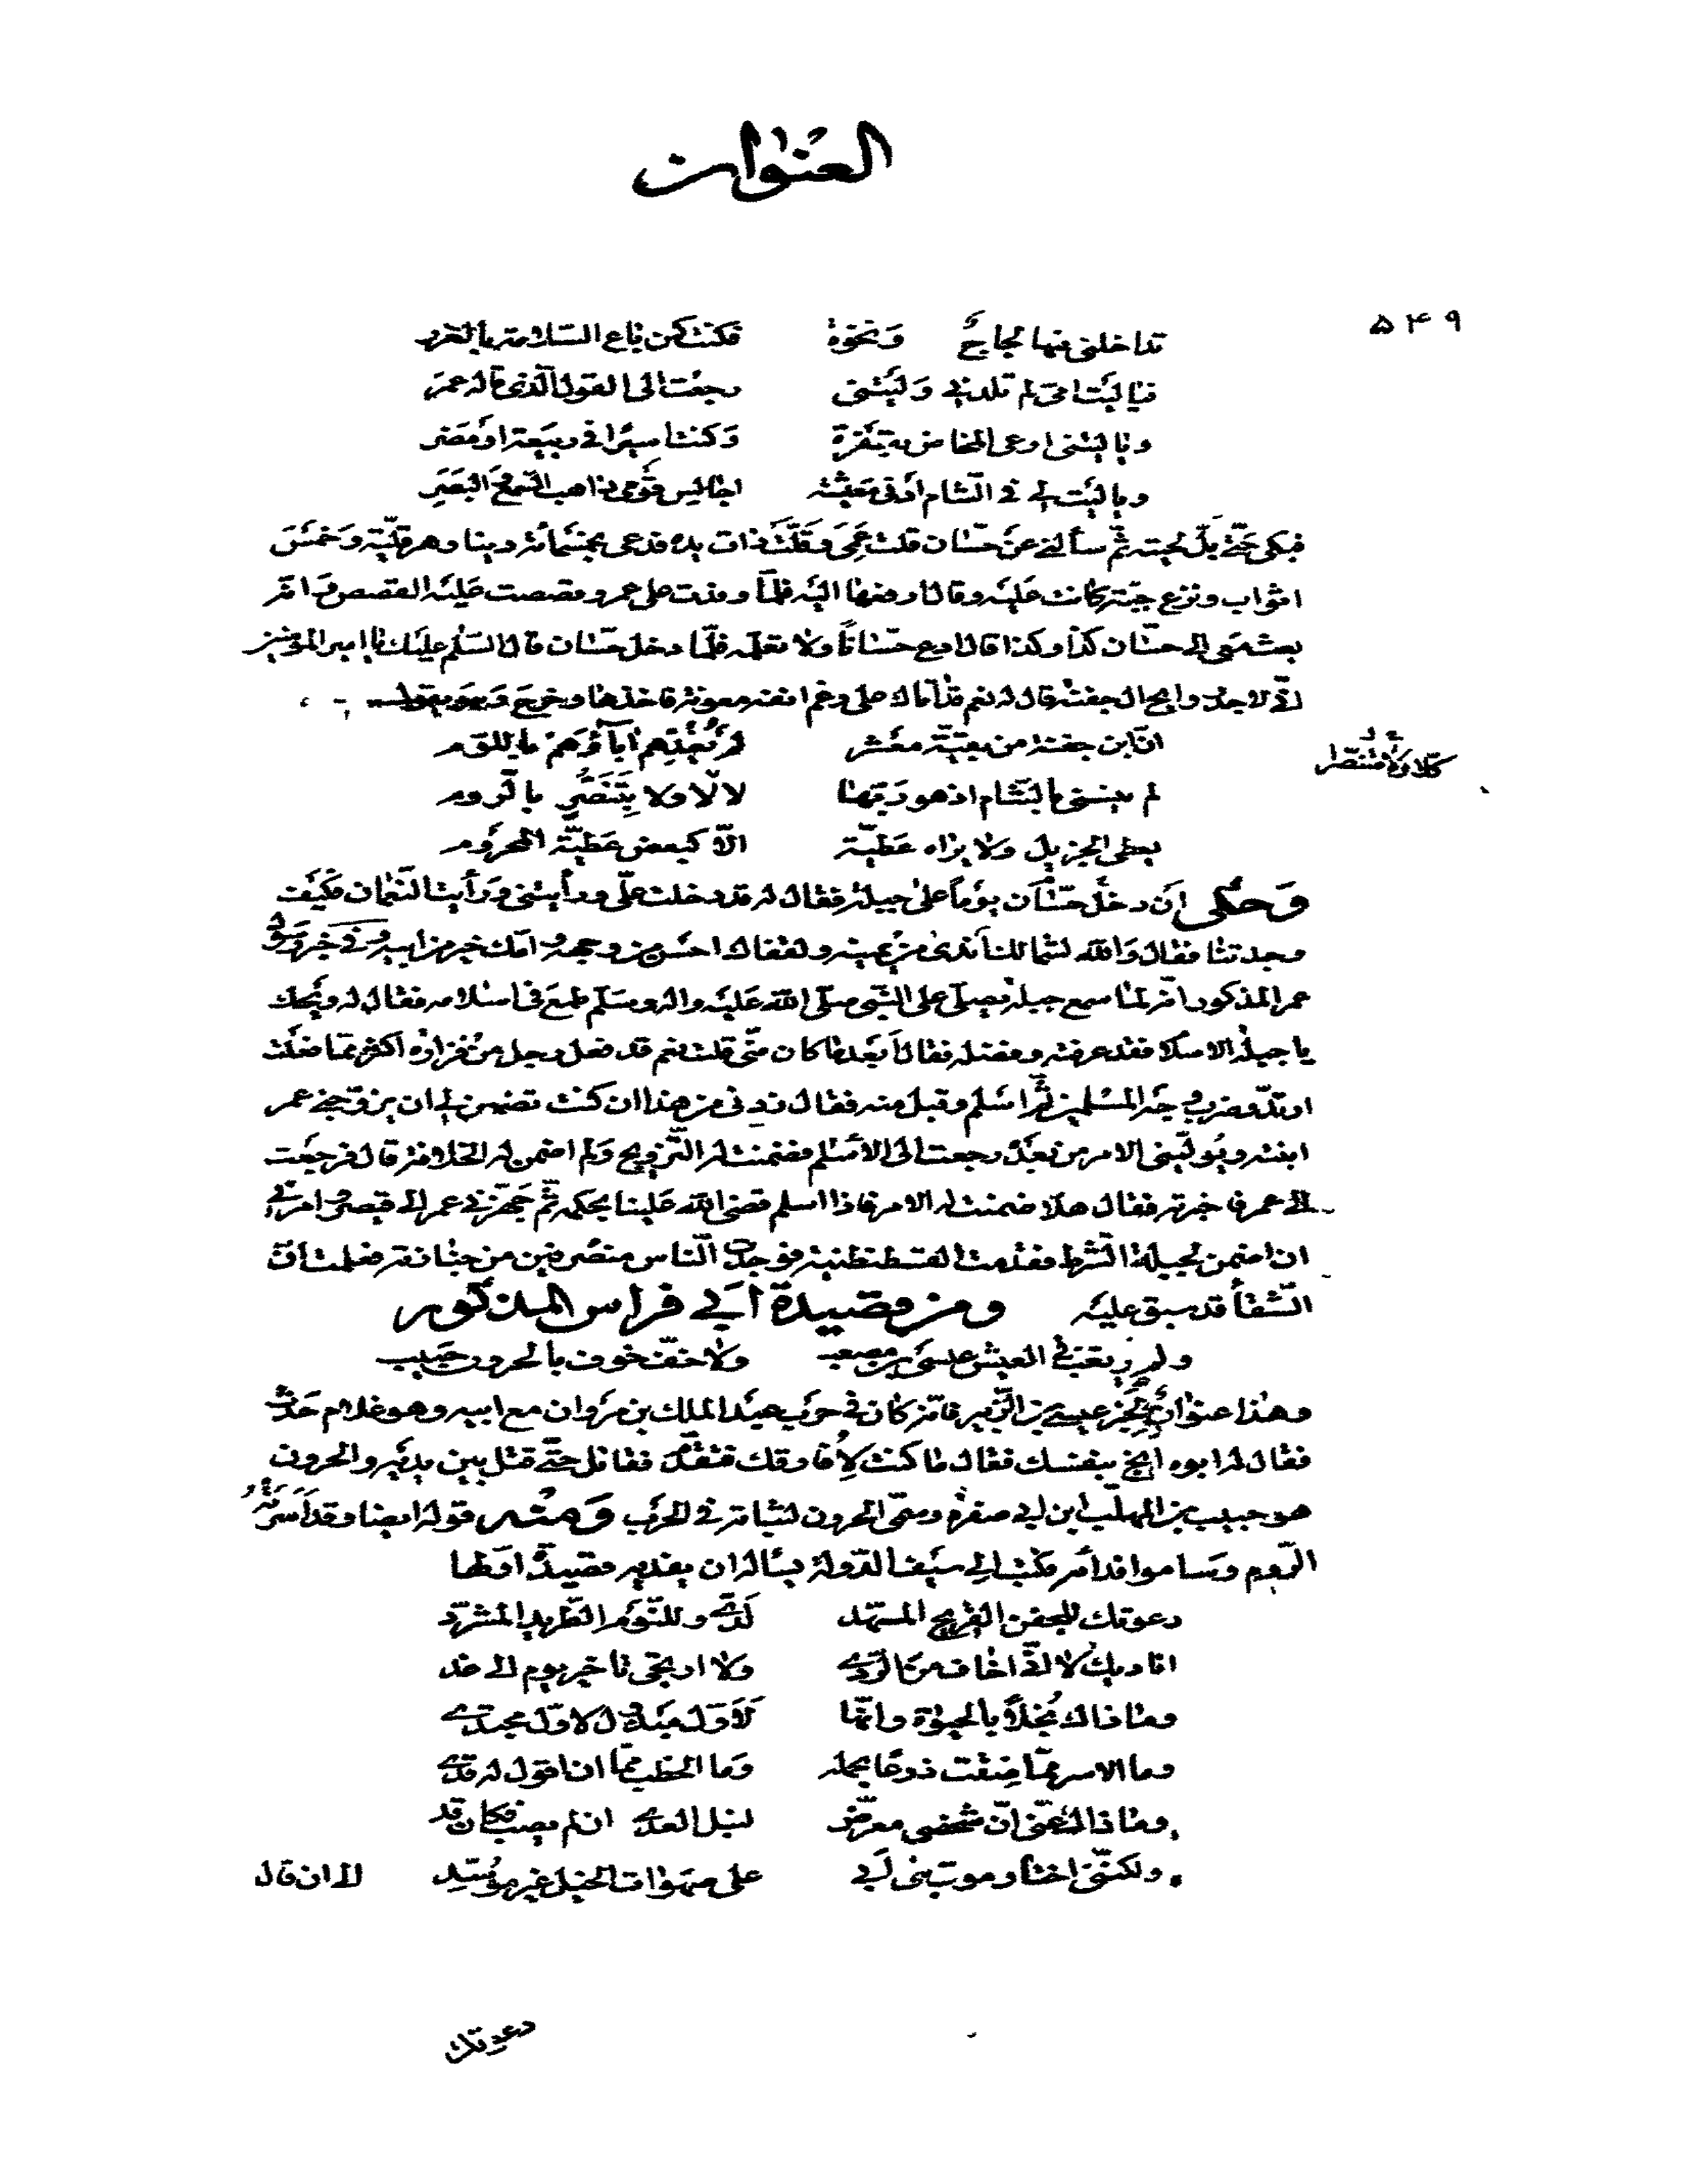 العنوان
۵۴۹
تداخلنى منها لجاج وَنخوة فكنت كمن باع السّلامة بالغرر
فيا ليت امى لم تلدنى وَليتنى رجعت الى القول الّذى قاله عمر
ويا ليتنى ارعى المخاض بقفرة وَكنت اسيرًا فى ربيعة او مضر
ويا ليت لى فى الشام ادنى معيشة اجالس قومى ذاهب السّمع وَالبصر
فبكى حتّى بلّ لحيته ثمّ سألنى عن حسّان قلت عمى وَقلّت ذات يده فدعى بخمسمائة دينار هرقليّة وَخمس
اثواب ونزع جبّة كانت عليه وقال ادفعها اليه فلمّا وفدت على عمر وقصصت عليه القصص وانّه
بعث معى الى حسّان كذا وكذا قال ادع حسّانًا ولا تعلمه فلمّا دخل حسّان قال السّلم عليك يا امير المؤمنين
انّى لاجد روايح ال جفنة قال له نعم قد اتاك على رغم انفه معونة فاخذها وخرج وَهو يقول
انّ ابن جفنة من بقيّة معشر لم يُغذِهم اباؤهم باللّوم
لم ينسنى بالشّام اذ هو ربّها لا لا ولا متنصّر بالرّوم
كلّا ولا متنصّرا
يعطى الجزيل ولا يراه عطيّة الّا كبعض عطيّة المحروم
وَحكى ان دخل حسّان يومًا على جبلة فقال له قد دخلت علىّ ورأيتنى وَرأيت النّعمان فكيف
وجدتنا فقال وَاللّه لشمالك أندى من يمينه ولقفاك احسن من وجهه وامّك خير من ابيه وفى خبر رسول
عمر المذكور انّه لمّا سمع جبلة يصلّى على النّبى صلّى اللّه عليه واله وسلّم طمع فى اسلامه فقال له ويحك
يا جبلة الاسلام فقد عرفته وفضله فقال أبعد ما كان منّى قلت نعم قد فعل رجل من فزارة اكثر ممّا فعلت
ارتدّ وضرب وجه المسلمين ثمّ اسلم وقبل منه فقال زدنى من هذا ان كنت تضمن لى ان يزوّجنى عمر
ابنته ويولّينى الامر من بعده رجعت الى الاسلم فضمنت له التّزويج وَلم اضمن له الخلافة قال فرجعت
الى عمر فاخبرته فقال هلا ضمنت له الامر فاذا اسلم قضى اللّه علينا بحكمه ثمّ جهّزنى عمر الى قيصر وامرنى
ان اضمن لجبلة الشّرط فقدمت القسطنطنية فوجدت النّاس منصرفين من جنازته فعلمت انّ
الشّقاء قد سبق عليه ومن قصيدة ابى فراس المذكور
ولم يرتغب فى العيش عيسى بن مصعب ولا خفّ خوف بالحرون حبيب
وهذا عنوان خبر عيسى بن الزّبير فانّه كان فى حرب عبد الملك بن مروان مع ابيه وهو غلام حدث
فقال له ابوه انج بنفسك فقال ما كنت لأفارقك فتقدّم فقاتل حتّى قتل بين يديه والحرون
هو حبيب بن المهلّب ابن ابى صفرة وسمّى الحرون لثباته فى الحرب وَمنه قوله ايضا وقد اسرته
الرّوم وسامو افداءه فكتب الى سيف الدّولة يساله ان يفديه قصيدة اوّلها
دعوتك للجفن القريح المسهّد لدىّ وللنّوم الطّريد المشرّد
اناديك لا انّى اخاف من الرّدى ولا ارتجى تاخير يوم الى غد
وما ذاك بُخلًا بالحيوة وانّها لَأوّل مبذول لاوّل مجتدى
وما الاسر ممّا ضقت ذرعًا بحمله وما الخطب ممّا ان اقول له قدى
وما زال عنّى انّ شخصى معرّض لنبل العدى ان لم يصب فكان قد
ولكنّنى اختار موت بنى ابى على صهوات الخيل غير موسّد الى ان قال
دعوتك